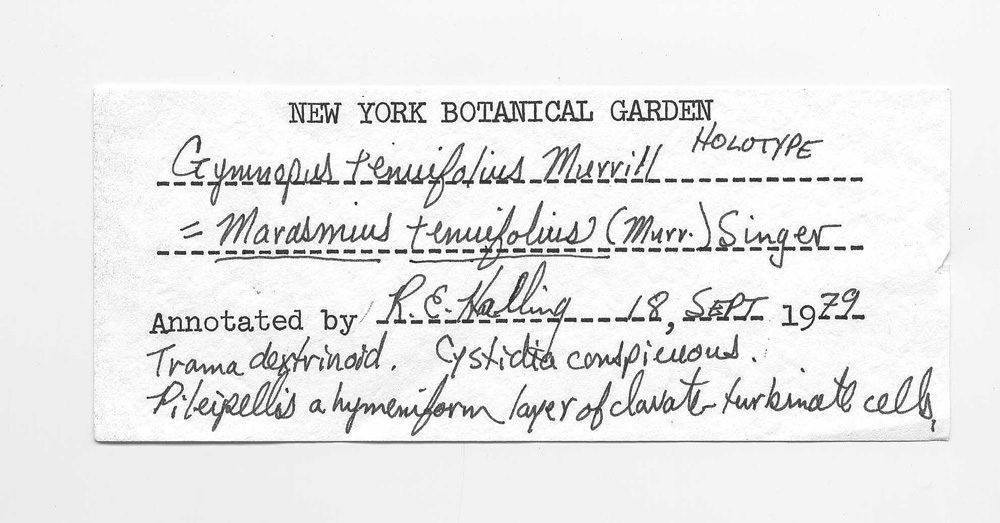 NEW YORK BOTANICAL GARDEN
Gymnopus tenuifolius Murrill HOLOTYPE
= Marasmius tenuifolius (Murr.) Singer
Annotated by R.E. Halling 18, SEPT 1979
Trama dextrinoid. Cystidia conspicuous.
Pileipellis a hymeniform layer of clavate-turbinate cells,